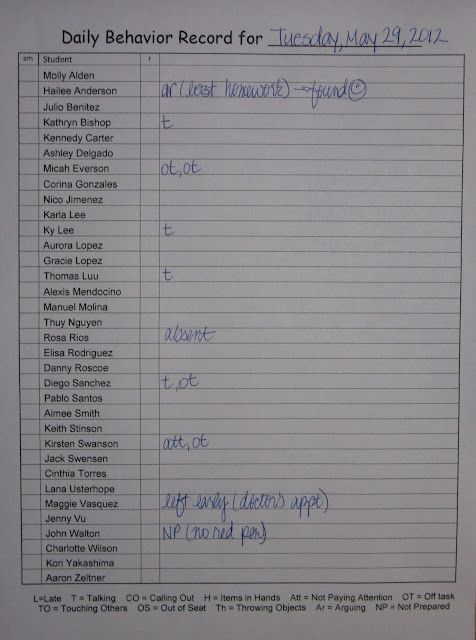 Daily Behavior Record for Tuesday, May 29, 2012
am Student r
Molly Alden
Hailee Anderson ar (lost homework) → found☺
Julio Benitez
Kathryn Bishop t
Kennedy Carter
Ashley Delgado
Micah Everson ot, ot
Corina Gonzales
Nico Jimenez
Karla Lee
Ky Lee t
Aurora Lopez
Gracie Lopez
Thomas Luu t
Alexis Mendocino
Manuel Molina
Thuy Nguyen
Rosa Rios absent
Elisa Rodriguez
Danny Roscoe
Diego Sanchez t, ot
Pablo Santos
Aimee Smith
Keith Stinson
Kirsten Swanson att, ot
Jack Swensen
Cinthia Torres
Lana Usterhope
Maggie Vasquez left early (doctors appt)
Jenny Vu
John Walton NP (no red pen)
Charlotte Wilson
Kori Yakashima
Aaron Zeltner
L=Late T = Talking CO = Calling Out H = Items in Hands Att = Not Paying Attention OT = Off task
TO = Touching Others OS = Out of Seat Th = Throwing Objects Ar = Arguing NP = Not Prepared